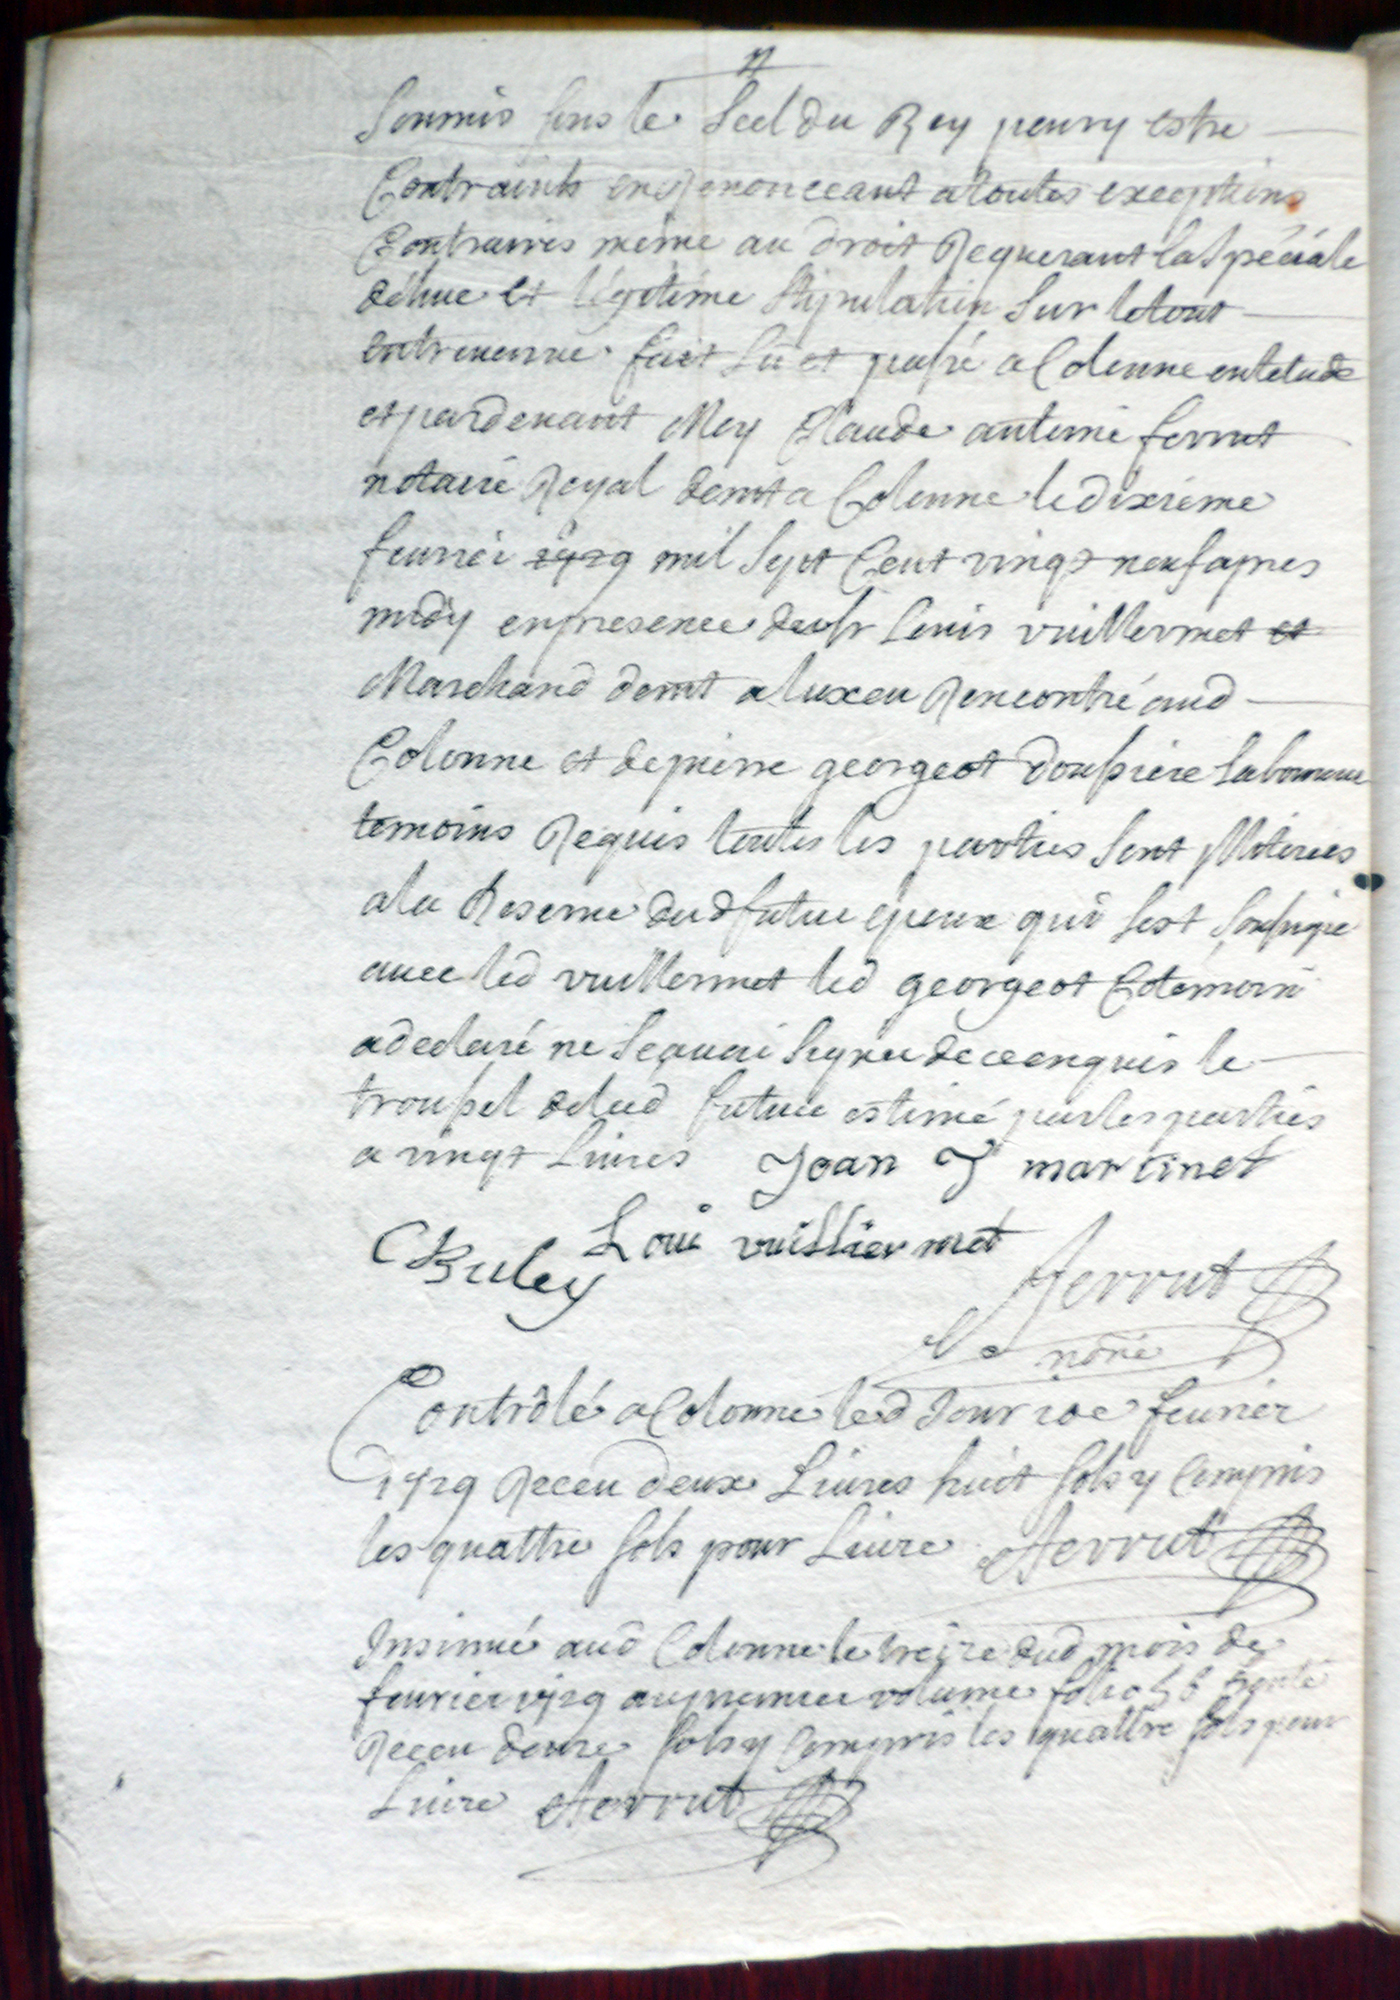 Soumis sous le Scel du Roy pour y estre
Contraints en Renonceant a toutes exceptions
Contraires meme au droit Requerant la Spéciale
dehue et légitime Stipulation Sur le tout
entrevenue fait Lu et passé a Colonne en letude
et pardevant Moy Claude antoine ferrut
notaire Royal demt a Colonne le dixiéme
feuvrier 1729 mil Sept Cent vingt neuf apres
midy en presence du sr Louis vuillermet et
Marchand demt a Rencontré aud
Colonne et de pierre georgeot Laboureur
temoins Requis toutes les parties Sont
a la Reserve dud futur epoux qui Sest Soussigné
avec led vuillermet led georgeot Cotémoin
a declaré ne Sçavoir Signer de ce enquis le
troussel delad future estimé par les parties
a vingt Livres Joan J martinet
CBuley Loui vuilliermet
ferrut
nore
Contrôlé a Colonne led Jour 10e feuvrier
1729 Receu deux Livres huit Sols y Compris
les quattre Sols pour Livre ferrut
Insinué aud Colonne le treize dud mois de
feuvrier 1729 au premier volume folio 56
Receu douze Sols y Compris les quattre Sols pour
Livre ferrut